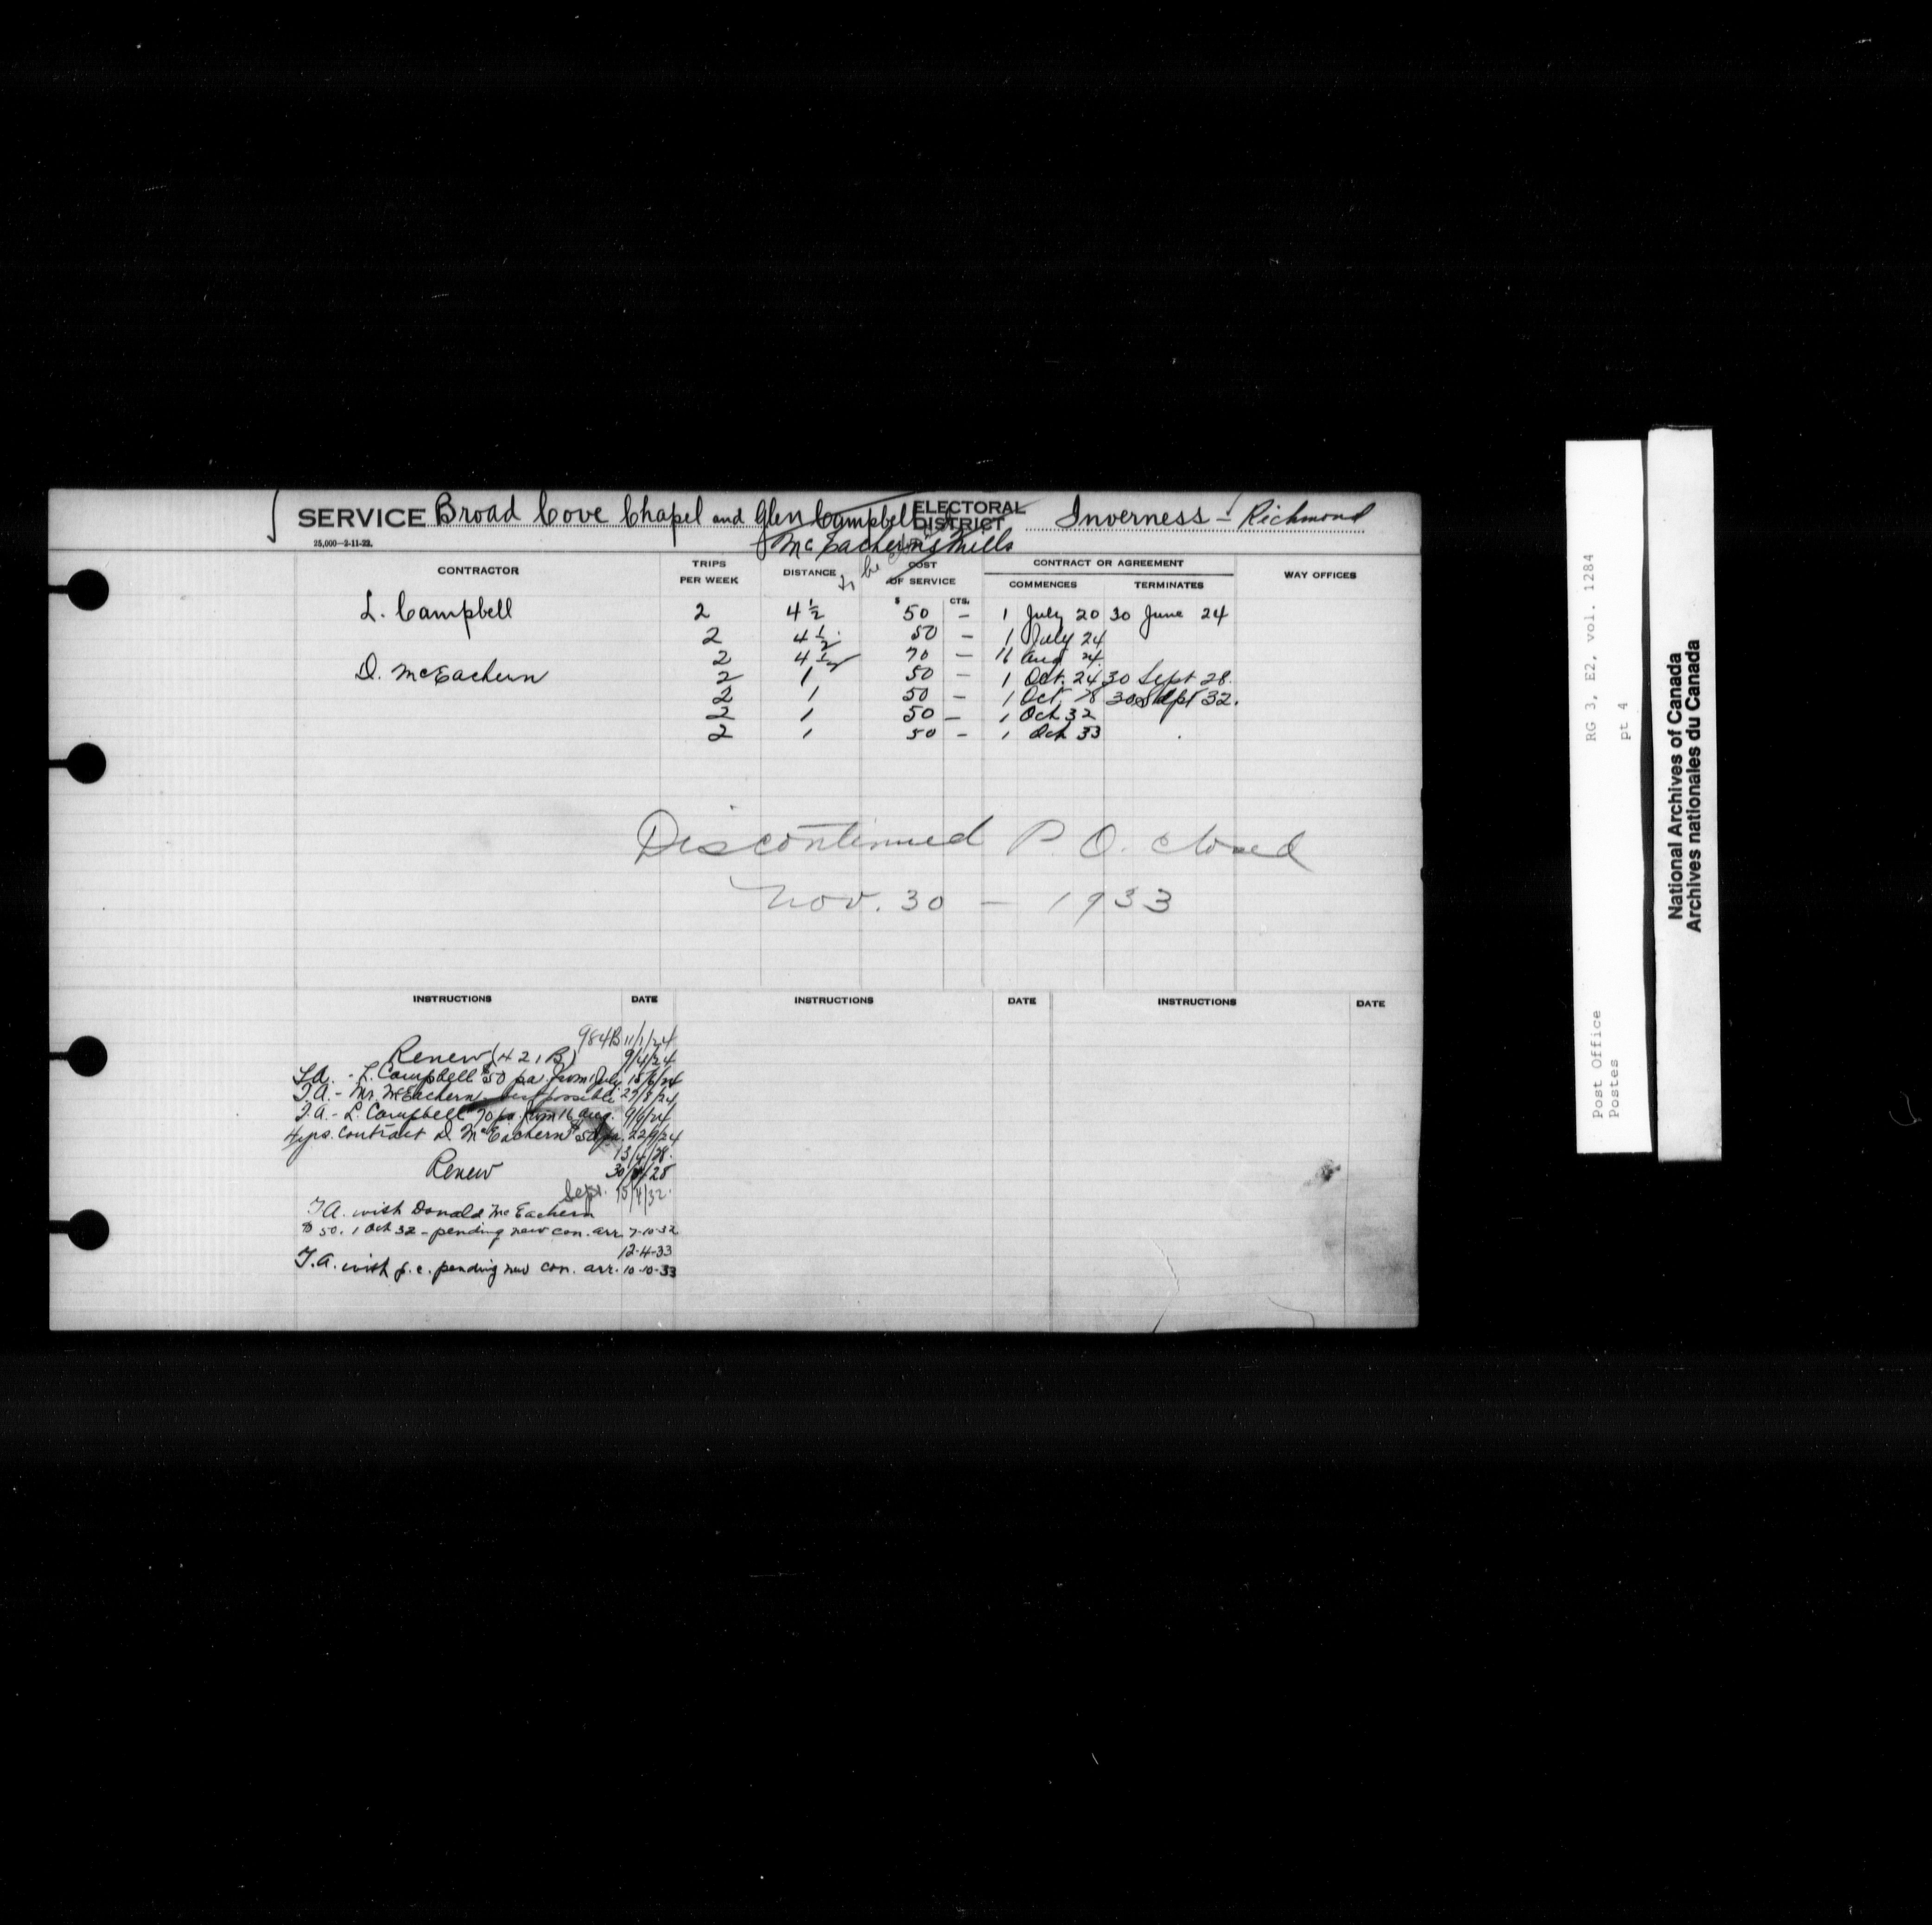 SERVICE Broad Cove Chapel and Glen Campbell ELECTORAL DISTRICT Inverness - Richmond
25,000-2-11-22.
McEachern's Mills
CONTRACTOR TRIPS PER WEEK DISTANCE COST OF SERVICE CONTRACT OR AGREEMENT WAY OFFICES
COMMENCES TERMINATES
$ CTS.
L. Campbell 2 4 1/2 50 - 1 July 20 30 June 24
2 4 1/2 50 - 1 July 24
2 4 1/2 70 - 16 Aug 24
D. McEachern 2 1 50 - 1 Oct. 24 30 Sept 28.
2 1 50 - 1 Oct. 28 30 Sept 32.
2 1 50 - 1 Oct 32
2 1 50 - 1 Oct 33
Discontinued P.O. closed
Nov. 30 - 1933
INSTRUCTIONS DATE INSTRUCTIONS DATE INSTRUCTIONS DATE
984B 11/1/24
Renew (421B) 9/4/24
T.A. - L. Campbell $50 pa. from 1 July
T.A. - Mr. McEachern possible 27/8/24
T.A. - L. Campbell 70 pa. from 16 Aug.
4 yrs. contract D. McEachern $50 pa. 22/9/24
13/4/28.
Renew 30/ /28
Sept. 15/4/32.
T.A. with Donald McEachern
$50. 1 Oct 32 - pending new con. arr. 7-10-32
12-4-33
T.A. with p.c. pending new con. arr. 10-10-33
RG 3, E2, vol. 1284
pt 4
Post Office
Postes
National Archives of Canada
Archives nationales du Canada